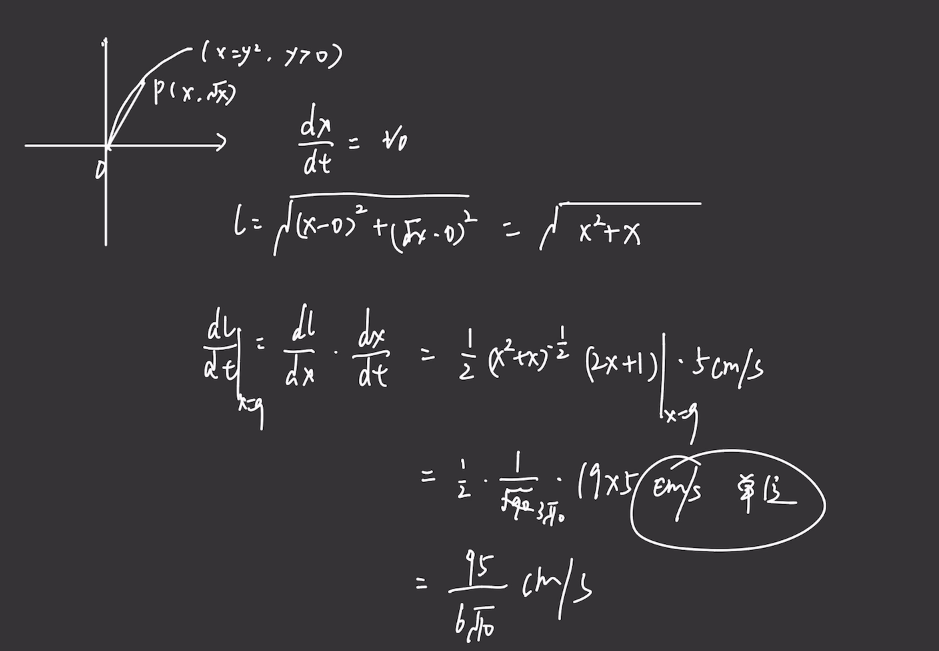 (x=y², y>0)
P(x, √x)
0
dx/dt = v₀
l = √((x-0)² + (√x-0)²) = √(x²+x)
dl/dt|x=9 = dl/dx · dx/dt = 1/2 (x²+x)^(-1/2) (2x+1)|x=9 · 5cm/s
= 1/2 · 1/√90 3√10 · 19×5 cm/s 单位
= 95/(6√10) cm/s